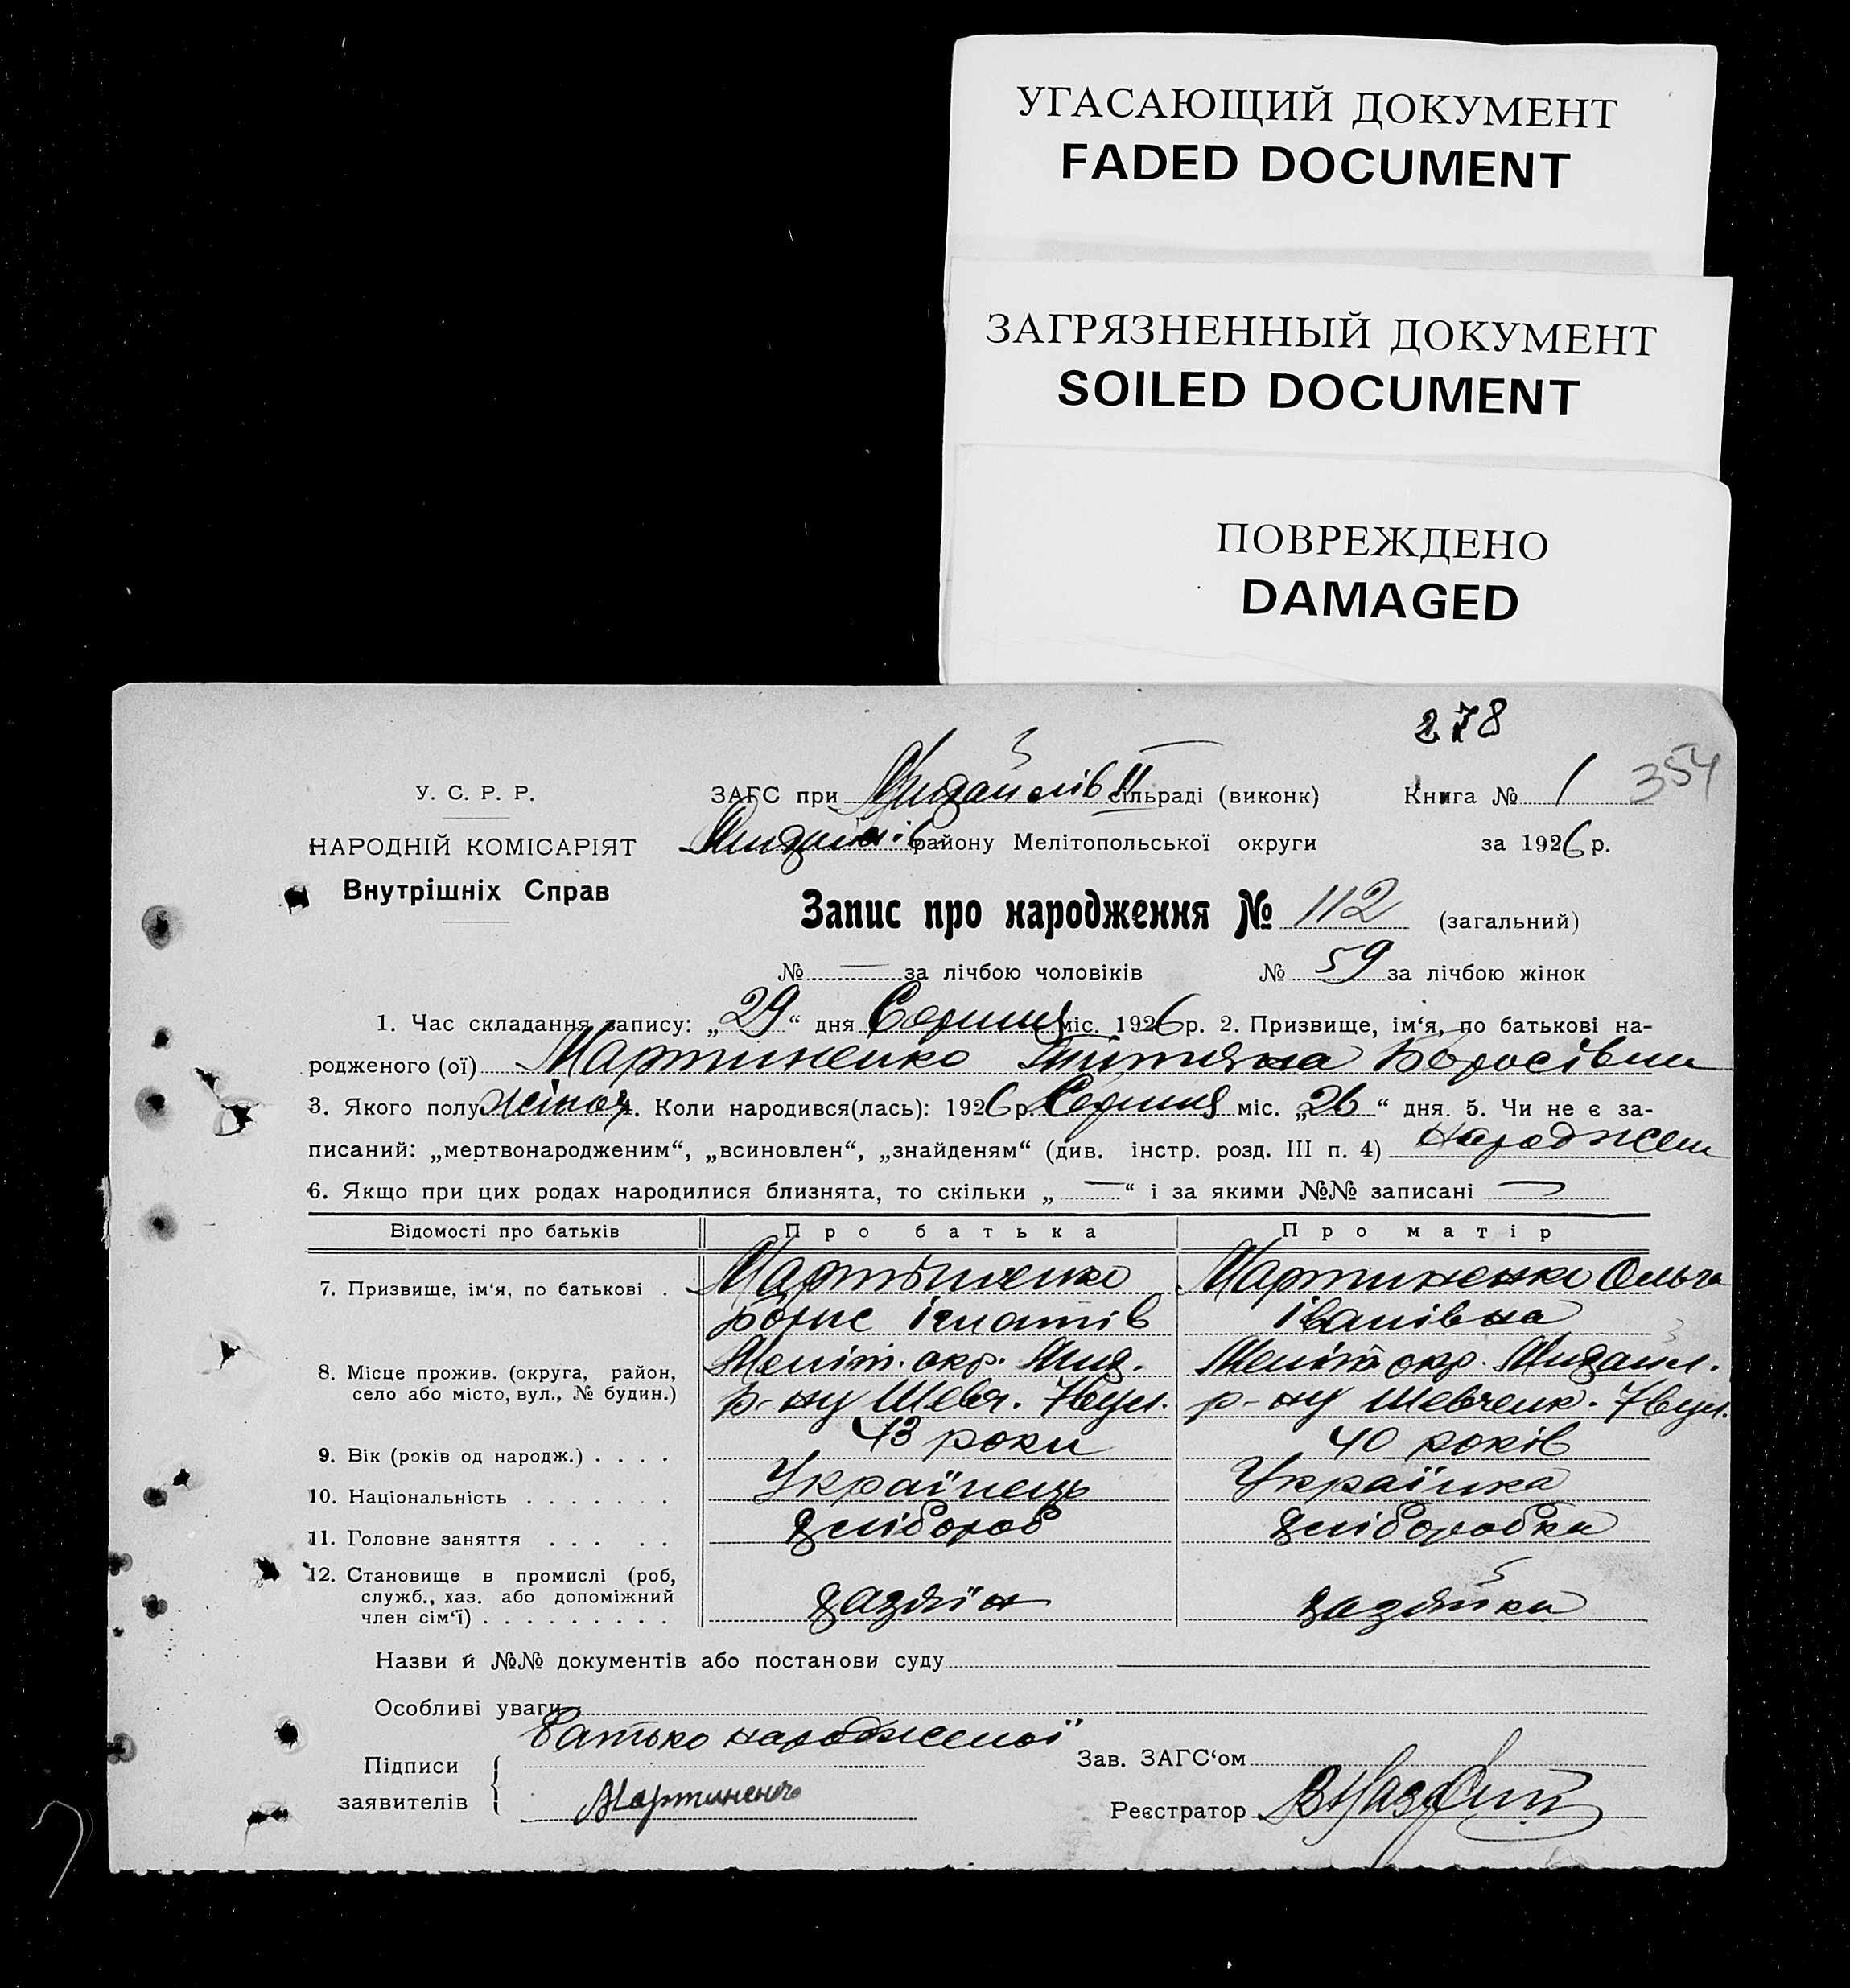 УГАСАЮЩИЙ ДОКУМЕНТ
FADED DOCUMENT
ЗАГРЯЗНЕННЫЙ ДОКУМЕНТ
SOILED DOCUMENT
ПОВРЕЖДЕНО
DAMAGED
278
354
У. С. Р. Р.
НАРОДНІЙ КОМІСАРІЯТ
Внутрішніх Справ
ЗАГС при Михайлів II сільраді (виконк) Книга № 1
Михайлів. району Мелітопольської округи за 1926 р.
Запис про народження № 112 (загальний)
№ — за лічбою чоловіків № 59 за лічбою жінок
1. Час складання запису: „29“ дня Серпня міс. 1926 р. 2. Призвище, ім‘я, по батькові на-
родженого (ої) Мартиненко Титяна Борисівни
3. Якого полу жіноч. 4. Коли народився(лась): 1926 р. Серпня міс. „26“ дня. 5. Чи не є за-
писаний: „мертвонародженим“, „всиновлен“, „знайденям“ (див. інстр. розд. III п. 4) народжени
6. Якщо при цих родах народилися близнята, то скільки „—“ і за якими №№ записані —
Відомості про батьків Про батька Про матір
7. Призвище, ім‘я, по батькові . Мартыненко Мартиненко Ольга
Борис Ігнатів Іванівна
8. Місце прожив. (округа, район, Меліт. окр. Мих. Меліт окр. Михайл.
село або місто, вул., № будин.) р-ну Шевч. 7 вул. р-ну Шевченк. 7 вул.
9. Вік (років од народж.) . . . . 43 роки 40 років
10. Національність . . . . . . . Українець Українка
11. Головне заняття . . . . . хлібороб хлібородка
12. Становище в промислі (роб,
служб., хаз. або допоміжний
член сім‘ї) . . . . . . . . . хазяїн хазяйка
Назви й №№ документів або постанови суду
Особливі уваги
Батько народженої
Підписи
заявителів
Мартиненко
Зав. ЗАГС‘ом
Реєстратор